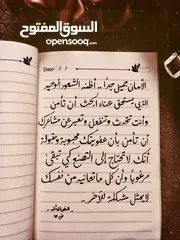 السوق المفتوح
opensooq.com
Date: / /
الأمان جميل جداً .. أظنه الشعور الوحيد
الذي يستحق عناء البحث أن تأمن
وأنت تتحدث وتنفعل وتعبر عن مشاعرك
أن تأمن بأن عفويتك محبوبة ومقبولة
أنك لا تحتاج إلى التصنع كي تبقى
مرغوباً وأن كل ما تعانيه من نفسك
لا يمثل مشكلة للآخر..